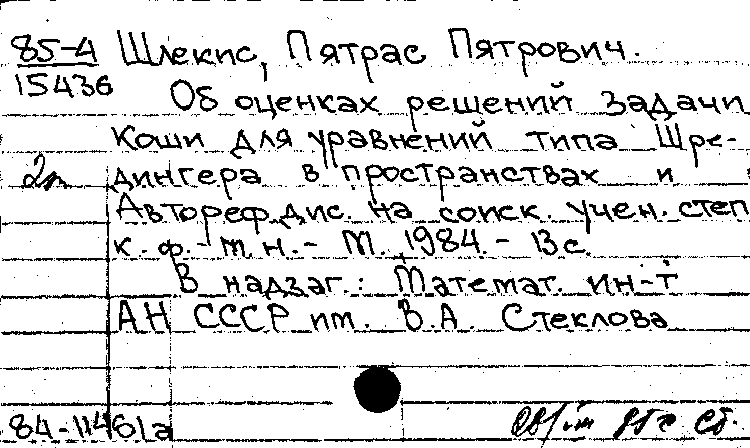 85-4 Шлекис, Пятрас Пятрович.
15436
Об оценках решений задачи
Коши для уравнений типа Шре-
2п дингера в пространствах и
Автореф. дис. на соиск. учен. степ
к. ф.-м. н. - М., 1984. - 13 с.
В надзаг.: Математ. ин-т
АН СССР им. В.А. Стеклова
84-11461а